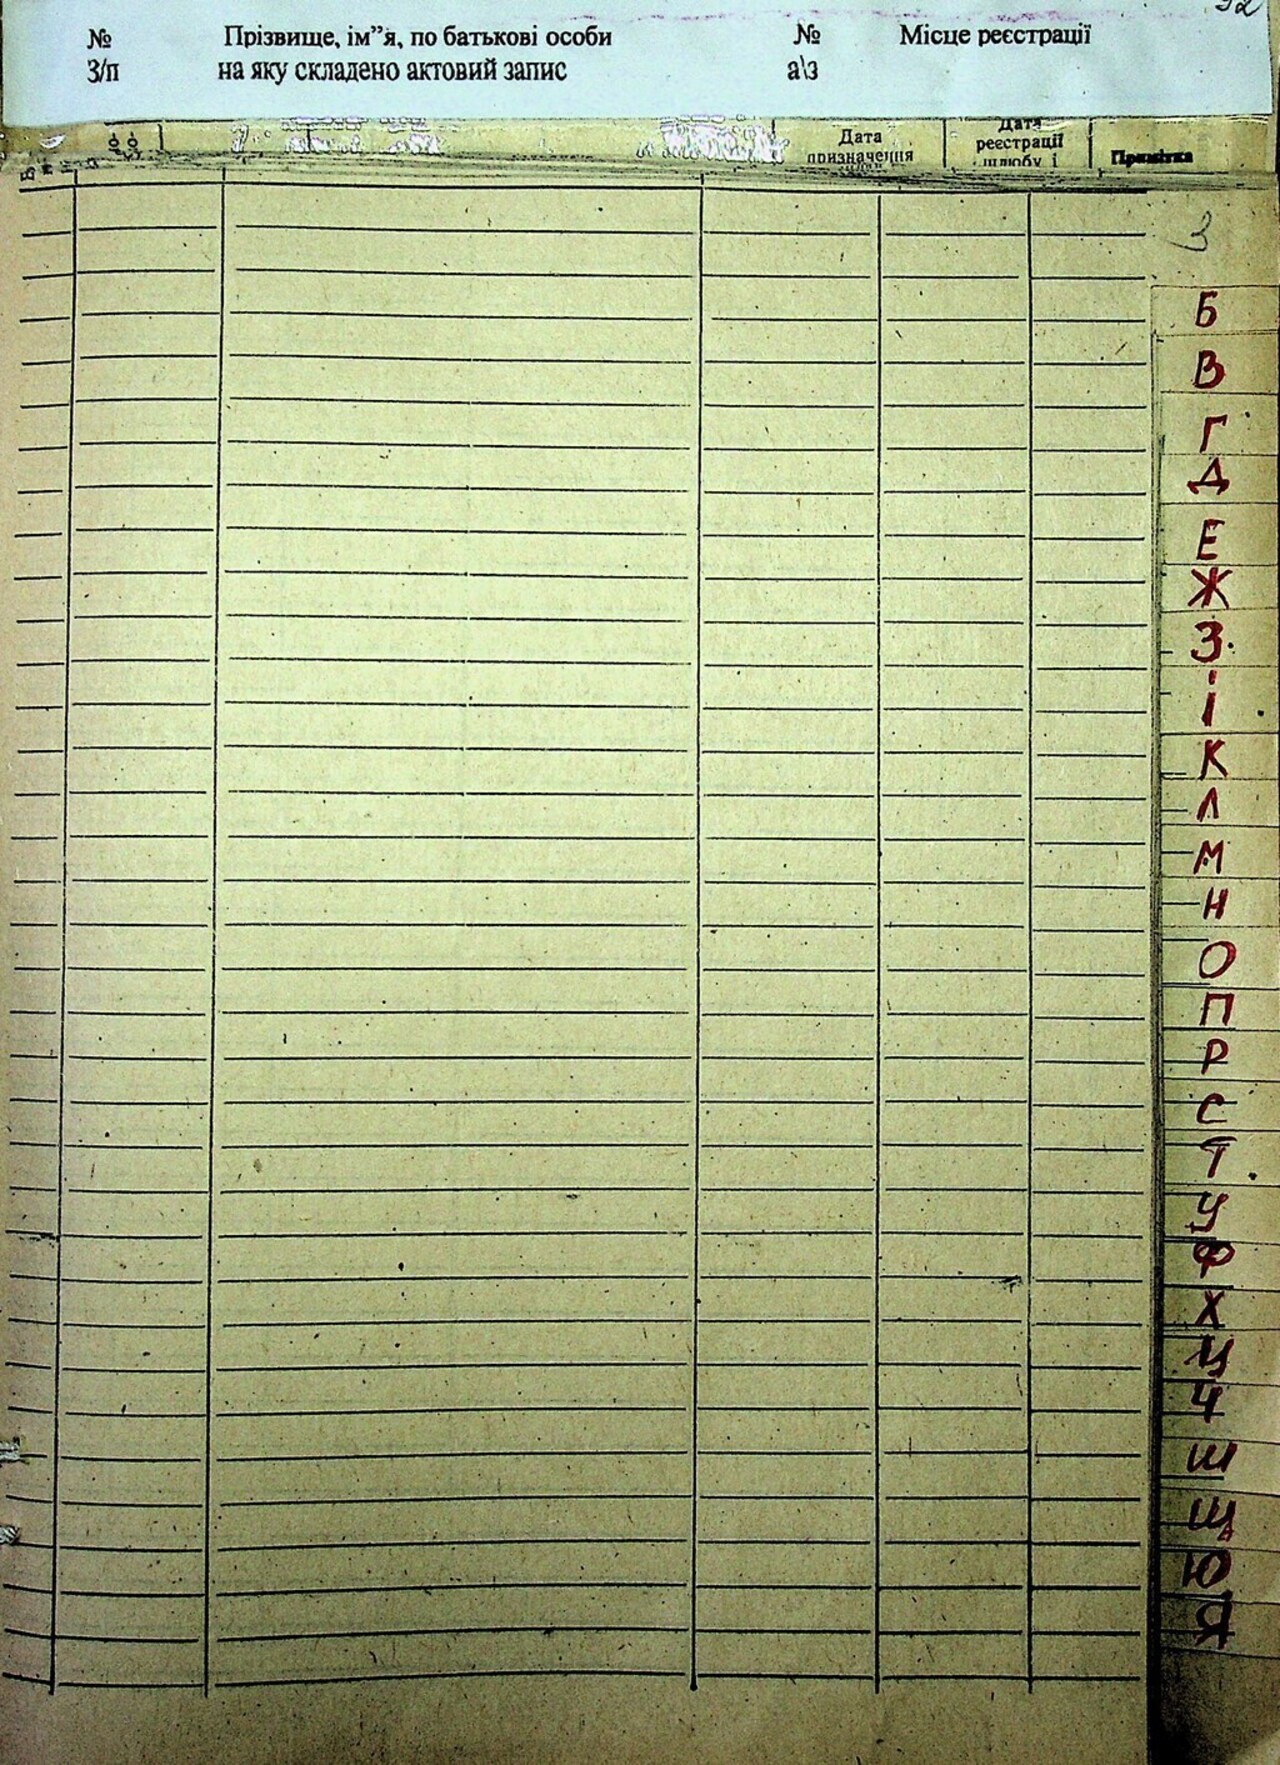 № Прізвище, ім”я, по батькові особи № Місце реєстрації
З/п на яку складено актовий запис а\з
Дата
призначення
Дата
реєстрації
шлюбу і
Примітка
3
Б
В
Г
Д
Е
Ж
З
І
К
Л
М
Н
О
П
Р
С
Т
У
Ф
Х
Ц
Ч
Ш
Щ
Ю
Я